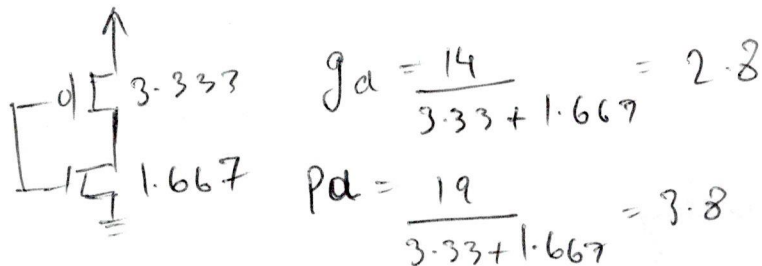 3.333
1.667
gd = 14 / 3.33 + 1.667 = 2.8
Pd = 19 / 3.33 + 1.667 = 3.8